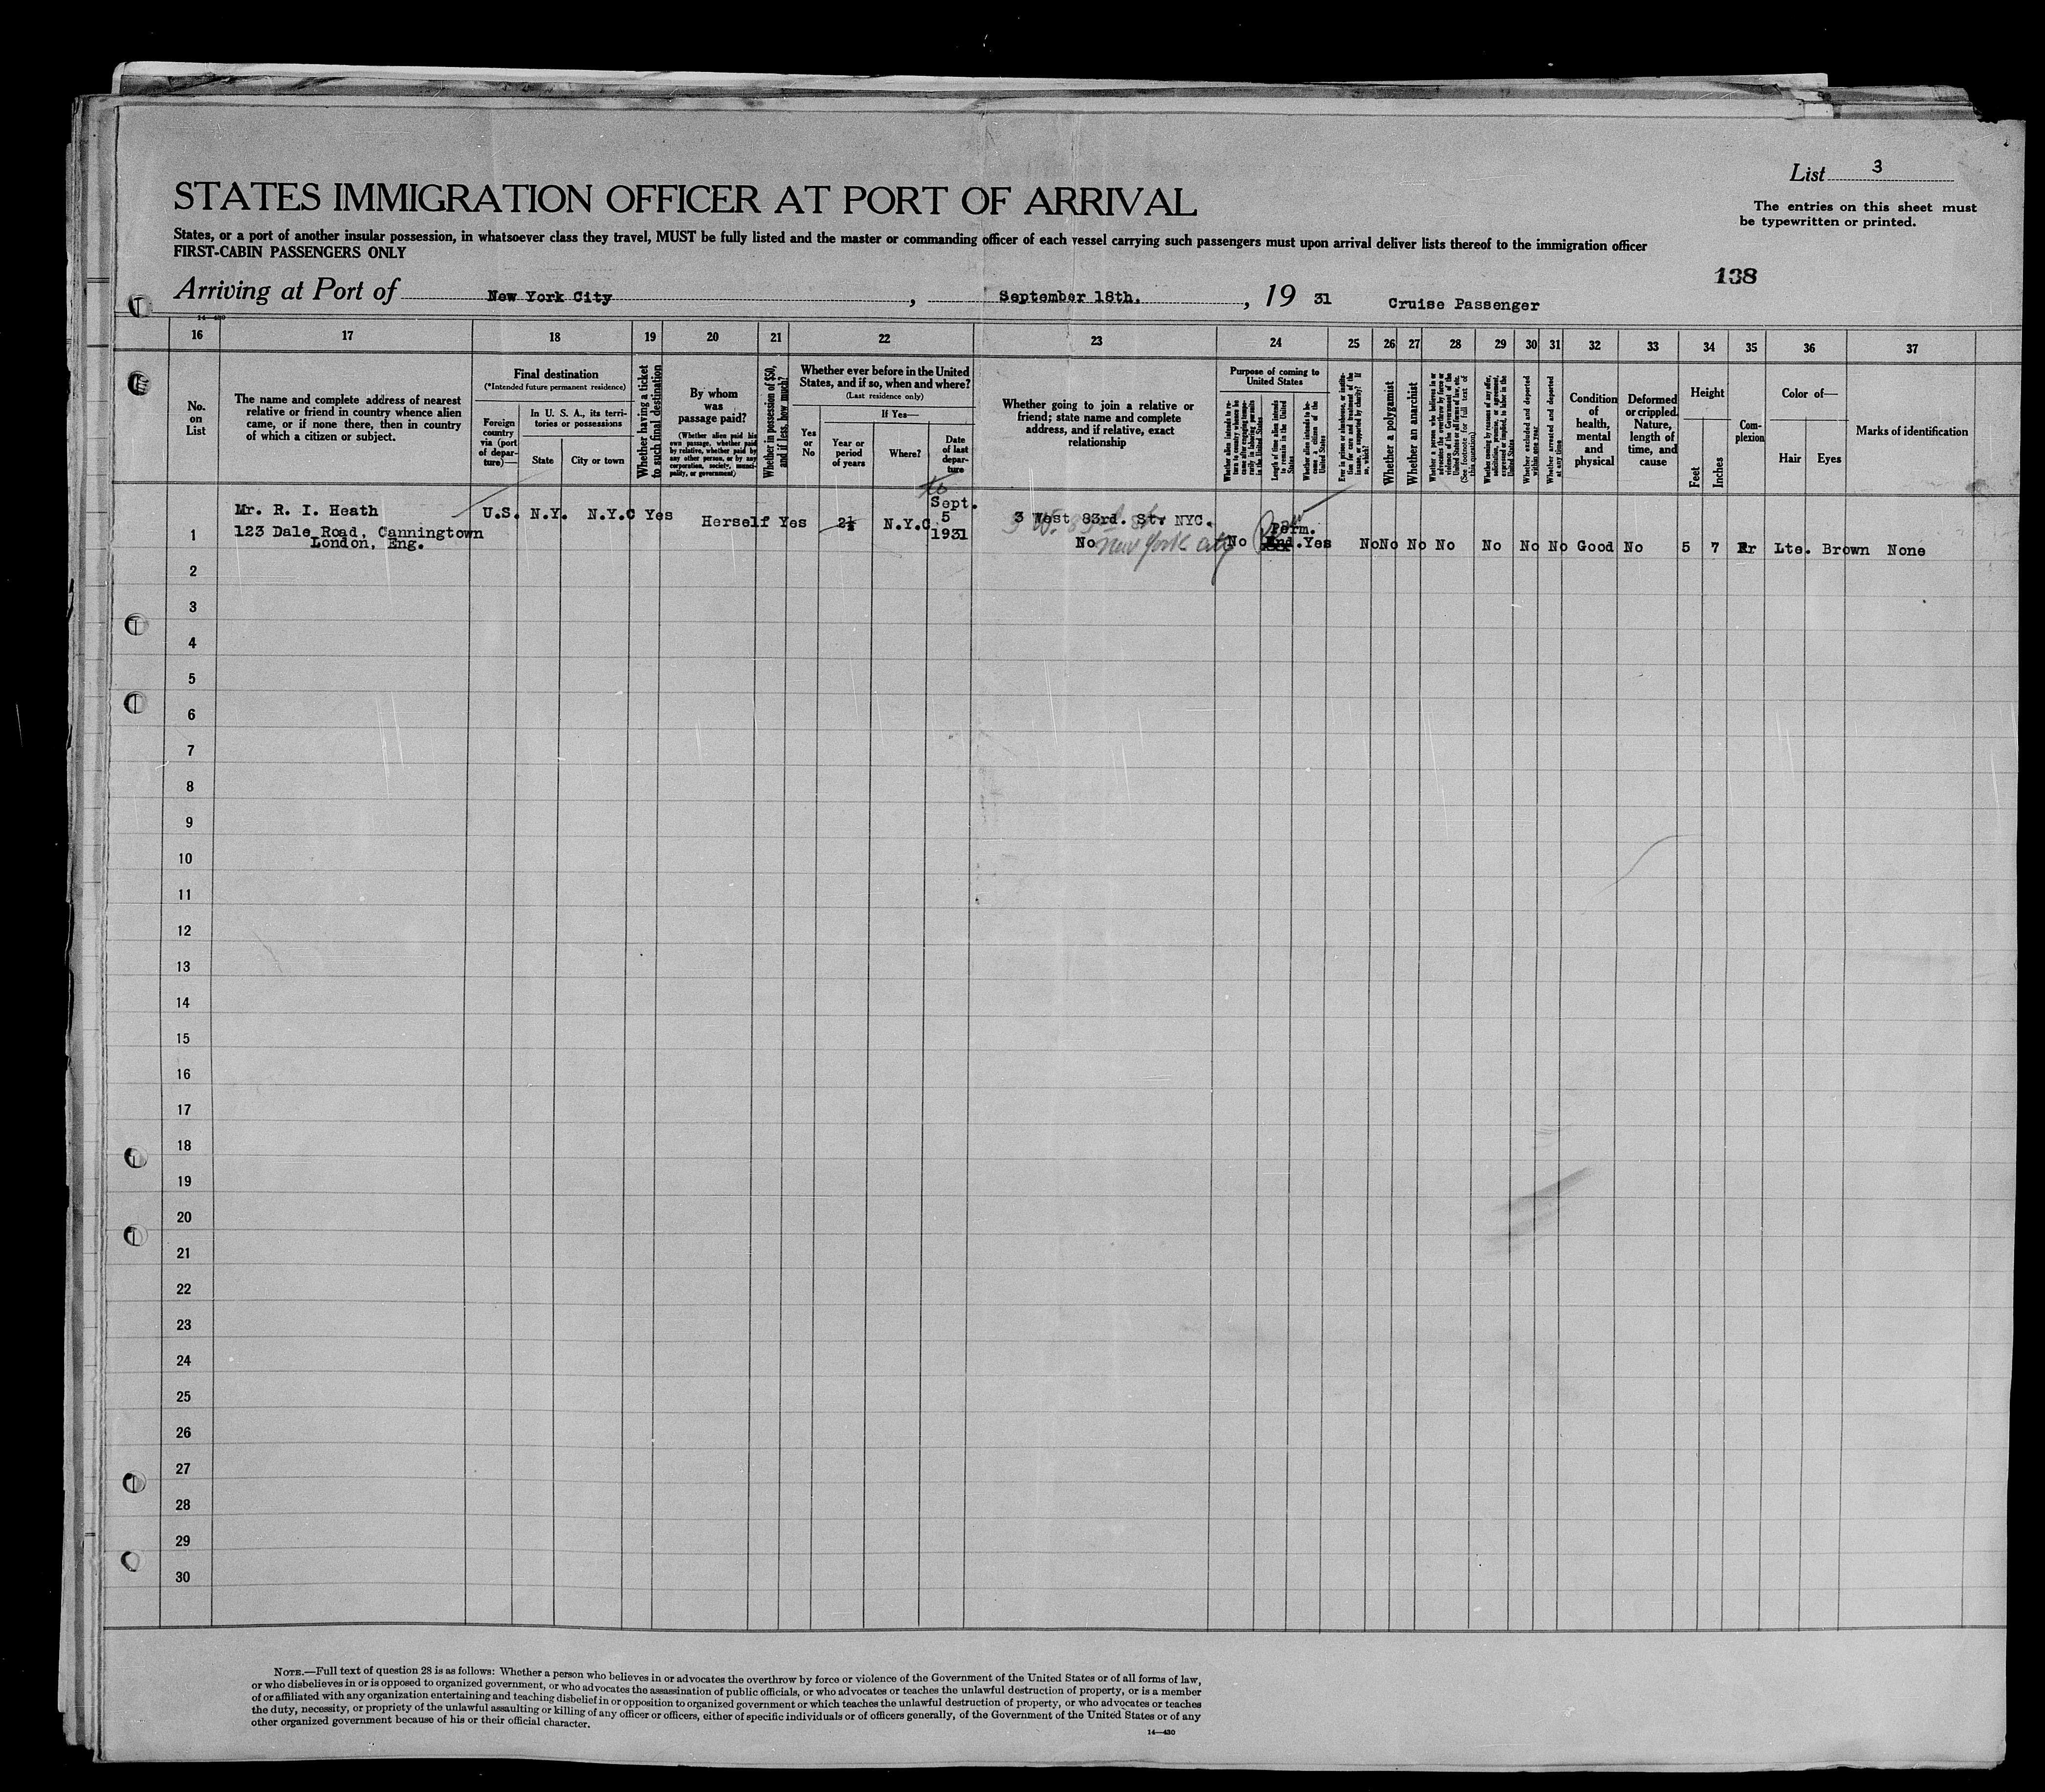 List 3
STATES IMMIGRATION OFFICER AT PORT OF ARRIVAL
The entries on this sheet must
be typewritten or printed.
States, or a port of another insular possession, in whatsoever class they travel, MUST be fully listed and the master or commanding officer of each vessel carrying such passengers must upon arrival deliver lists thereof to the immigration officer
FIRST-CABIN PASSENGERS ONLY
138
Arriving at Port of New York City, September 18th., 19 31 Cruise Passenger
14—430
16 17 18 19 20 21 22 23 24 25 26 27 28 29 30 31 32 33 34 35 36 37
No.
on
List
The name and complete address of nearest
relative or friend in country whence alien
came, or if none there, then in country
of which a citizen or subject.
Final destination
(*Intended future permanent residence)
Foreign
country
via (port
of depar-
ture)—
In U. S. A., its terri-
tories or possessions
State
City or town
Whether having a ticket
to such final destination
By whom
was
passage paid?
(Whether alien paid his
own passage, whether paid
by relative, whether paid by
any other person, or by any
corporation, society, munici-
pality, or government)
Whether in possession of $50,
and if less, how much?
Whether ever before in the United
States, and if so, when and where?
(Last residence only)
Yes
or
No
If Yes—
Year or
period
of years
Where?
Date
of last
depar-
ture
Whether going to join a relative or
friend; state name and complete
address, and if relative, exact
relationship
Purpose of coming to
United States
Whether alien intends to re-
turn to country whence he
came after engaging tempo-
rarily in laboring pursuits
in the United States
Length of time alien intends
to remain in the United
States
Whether alien intends to be-
come a citizen of the
United States
Ever in prison or almshouse, or institu-
tion for care and treatment of the
insane, or supported by charity? If
so, which?
Whether a polygamist
Whether an anarchist
Whether a person who believes in or
advocates the overthrow by force or
violence of the Government of the
United States or all forms of law, etc.
(See footnote for full text of
this question)
Whether coming by reason of any offer,
solicitation, promise, or agreement,
expressed or implied, to labor in the
United States
Whether excluded and deported
within one year
Whether arrested and deported
at any time
Condition
of
health,
mental
and
physical
Deformed
or crippled.
Nature,
length of
time, and
cause
Height
Feet
Inches
Com-
plexion
Color of—
Hair
Eyes
Marks of identification
to
Sept.
5
1931
Mr. R. I. Heath
123 Dale Road, Canningtown
London, Eng.
U.S. N.Y. N.Y.C Yes Herself Yes 2½ N.Y.C
3 West 83rd. St. NYC.
3 W. 83rd St.
New York City
Perm.
1 No No Yes No No No No No No No Good No 5 7 Lte. Brown None
2
3
4
5
6
7
8
9
10
11
12
13
14
15
16
17
18
19
20
21
22
23
24
25
26
27
28
29
30
NOTE.—Full text of question 28 is as follows: Whether a person who believes in or advocates the overthrow by force or violence of the Government of the United States or of all forms of law,
or who disbelieves in or is opposed to organized government, or who advocates the assassination of public officials, or who advocates or teaches the unlawful destruction of property, or is a member
of or affiliated with any organization entertaining and teaching disbelief in or opposition to organized government or which teaches the unlawful destruction of property, or who advocates or teaches
the duty, necessity, or propriety of the unlawful assaulting or killing of any officer or officers, either of specific individuals or of officers generally, of the Government of the United States or of any
other organized government because of his or their official character.
14—430